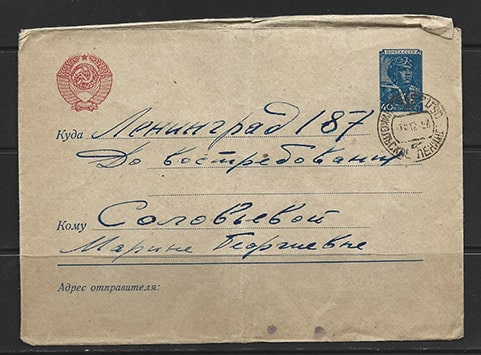 ПОЧТА СССР
40
Куда Ленинград 187
До востребования
Кому Соловьевой
Марине Георгиевне
Адрес отправителя: